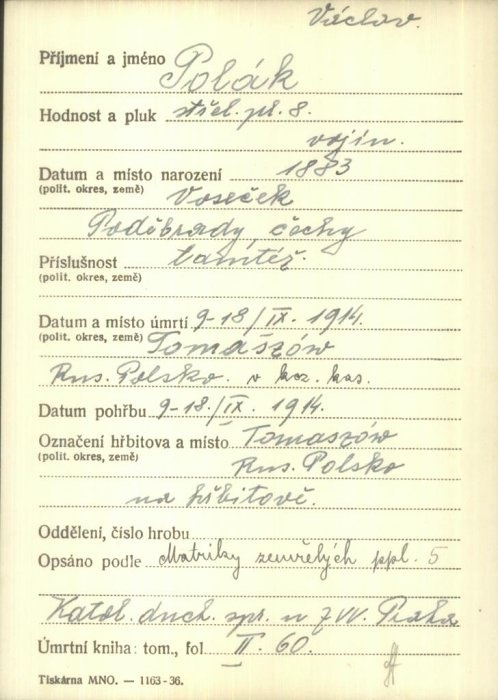 Václav.
Příjmení a jméno Polák
Hodnost a pluk střel. pl. 8.
vojín.
Datum a místo narození 1883
(polit. okres, země) Voseček
Poděbrady, čechy
Příslušnost tamtéž.
(polit. okres, země)
Datum a místo úmrtí 9-18/IX. 1914.
(polit. okres, země) Tomaszów
Rus. Polsko. v kas.
Datum pohřbu 9-18./IX. 1914.
Označení hřbitova a místo Tomaszów
(polit. okres, země) Rus. Polsko
na hřbitově.
Oddělení, číslo hrobu
Opsáno podle Matriky zemřelých ppl. 5
Katol. duch. spr. u ZVV. Praha
Úmrtní kniha: tom., fol II. 60.
Tiskárna MNO. — 1163-36.